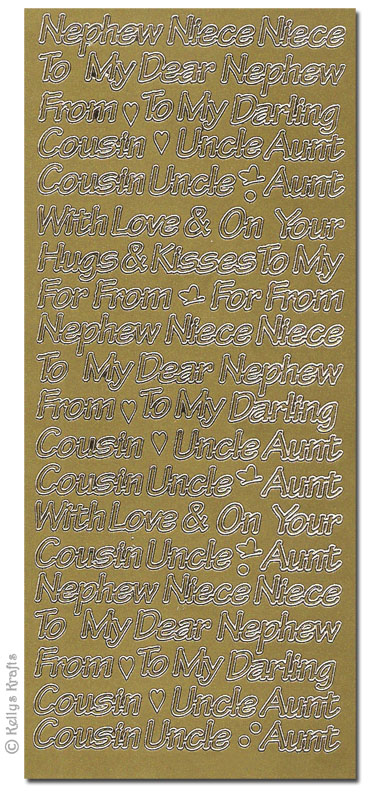 Nephew Niece Niece
To My Dear Nephew
From ♡ To My Darling
Cousin ♡ Uncle Aunt
Cousin Uncle Aunt
With Love & On Your
Hugs & Kisses To My
For From For From
Nephew Niece Niece
To My Dear Nephew
From ♡ To My Darling
Cousin ♡ Uncle Aunt
Cousin Uncle Aunt
With Love & On Your
Cousin Uncle Aunt
Nephew Niece Niece
To My Dear Nephew
From ♡ To My Darling
Cousin ♡ Uncle Aunt
Cousin Uncle Aunt
© Kellys Krafts